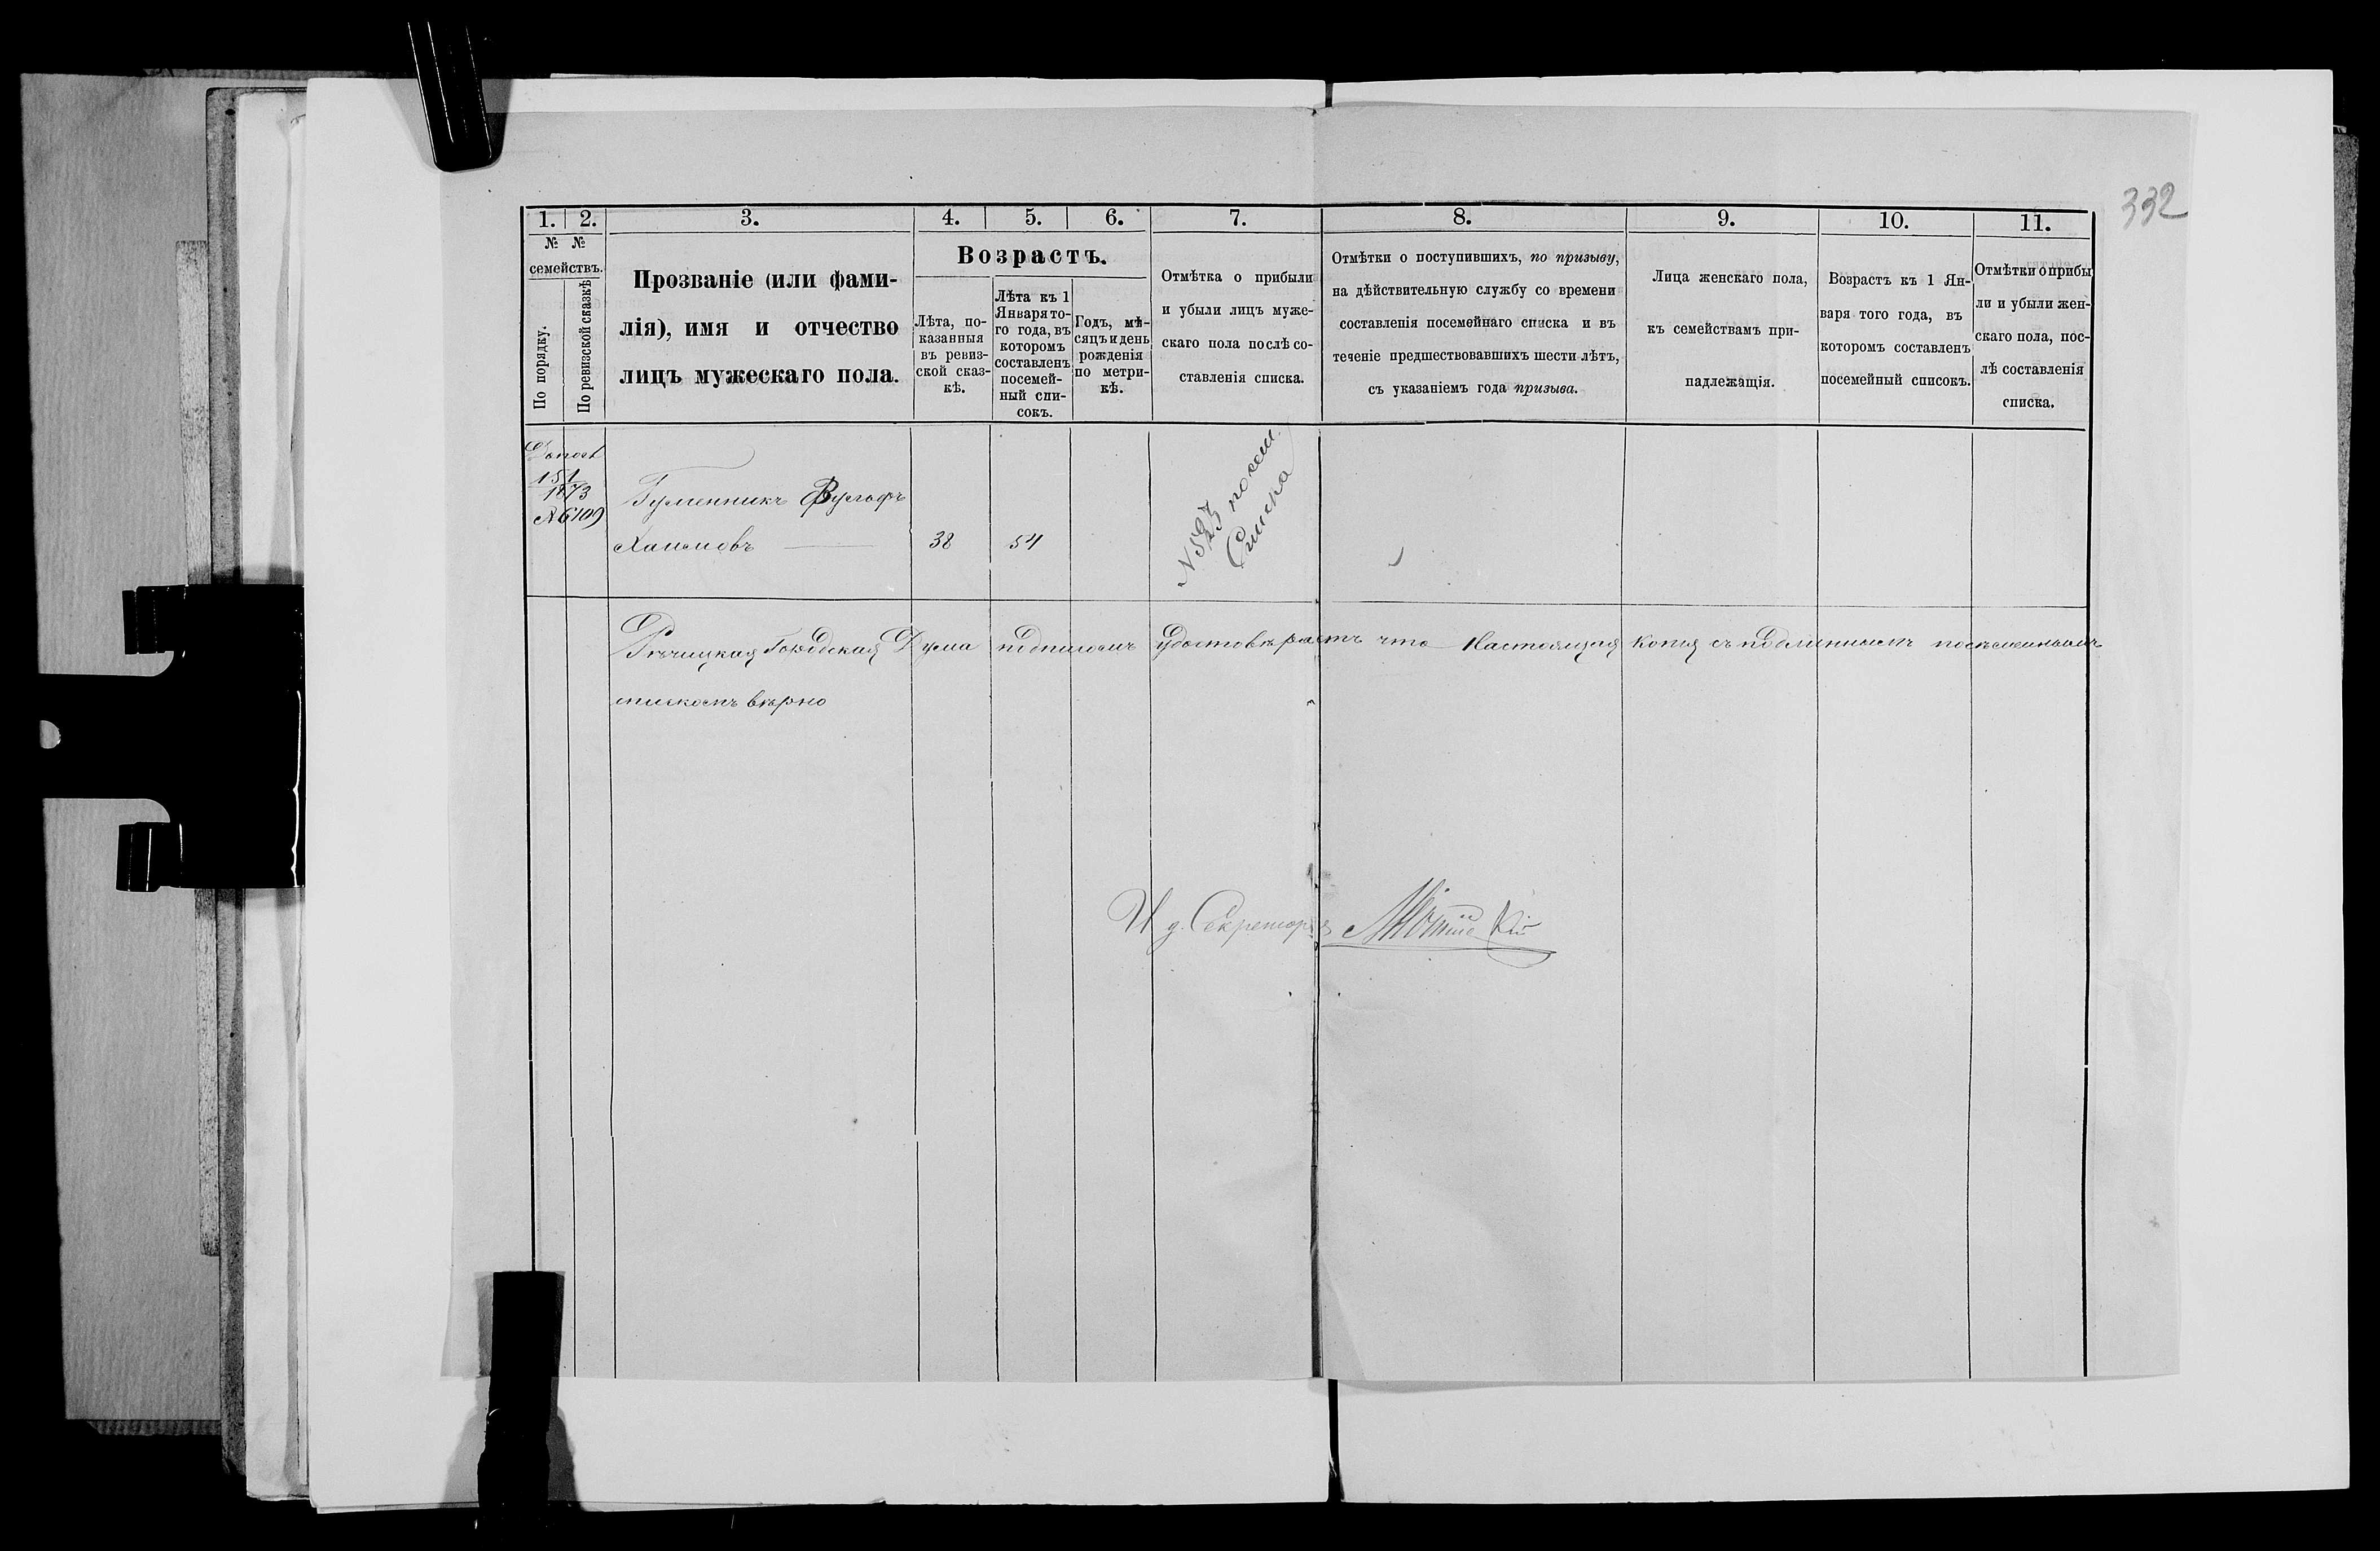 332
1. 2. 3. 4. 5. 6. 7. 8. 9. 10. 11.
№ №
семействъ.
По порядку.
По ревизской сказкѣ
Прозваніе (или фами-
лія), имя и отчество
лицъ мужескаго пола.
Возрастъ.
Лѣта, по-
казанныя
въ ревиз-
ской сказ-
кѣ.
Лѣта къ 1
Января то-
го года, въ
которомъ
составленъ
посемей-
ный спи-
сокъ.
Годъ, мѣ-
сяцъ и день
рожденія
по метри-
кѣ.
Отмѣтка о прибыли
и убыли лицъ муже-
скаго пола послѣ со-
ставленія списка.
Отмѣтки о поступившихъ, по призыву,
на дѣйствительную службу со времени
составленія посемейнаго списка и въ
теченіе предшествовавшихъ шести лѣтъ,
съ указаніемъ года призыва.
Лица женскаго пола,
къ семействамъ при-
надлежащія.
Возрастъ къ 1 Ян-
варя того года, въ
которомъ составленъ
посемейный списокъ.
Отмѣтки о прибы
ли и убыли жен-
скаго пола, пос-
лѣ составленія
списка.
151
1873
№ 6109
Гуменникъ Вульфъ
Хаимовъ 38 54
посем.
Списка
Рѣчицкая Городская Дума подписомъ удостовѣряетъ что Настоящая Копія съ подлиннымъ посемейнымъ
спискомъ вѣрно
И д. Секретаря